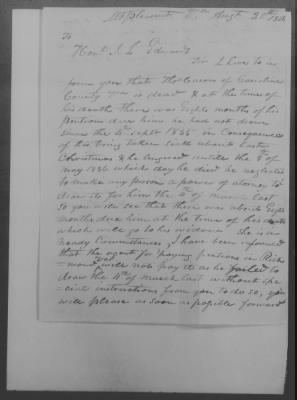 Mt Pleasant Va Augt 20th 1836
To
Honl. J. L. Edwards
Sir I have to in
form you that Tho Carson of Caroline
County Va is dead & at the time of
his death there was Eight months of his
pention due him he had not drawn
since the 4th Septr 1835 in Consequence
of his being taken sick about last
Christmas & he lingered untill the 8 of
may 1836 which day he died he neglected
to make any person a power of atorney to
draw it for him the 4th of march last
so you will see that there was about Eight
months due him at the time of his death
which will go to his widow she is in
needy Circumstances, I have been informed
that the agent for paying pentions in Rich
=mond Va will not pay it as he failed to
draw the 4th of march last without spe
=cial instructions from you to do so, you
will please as soon as possible forward